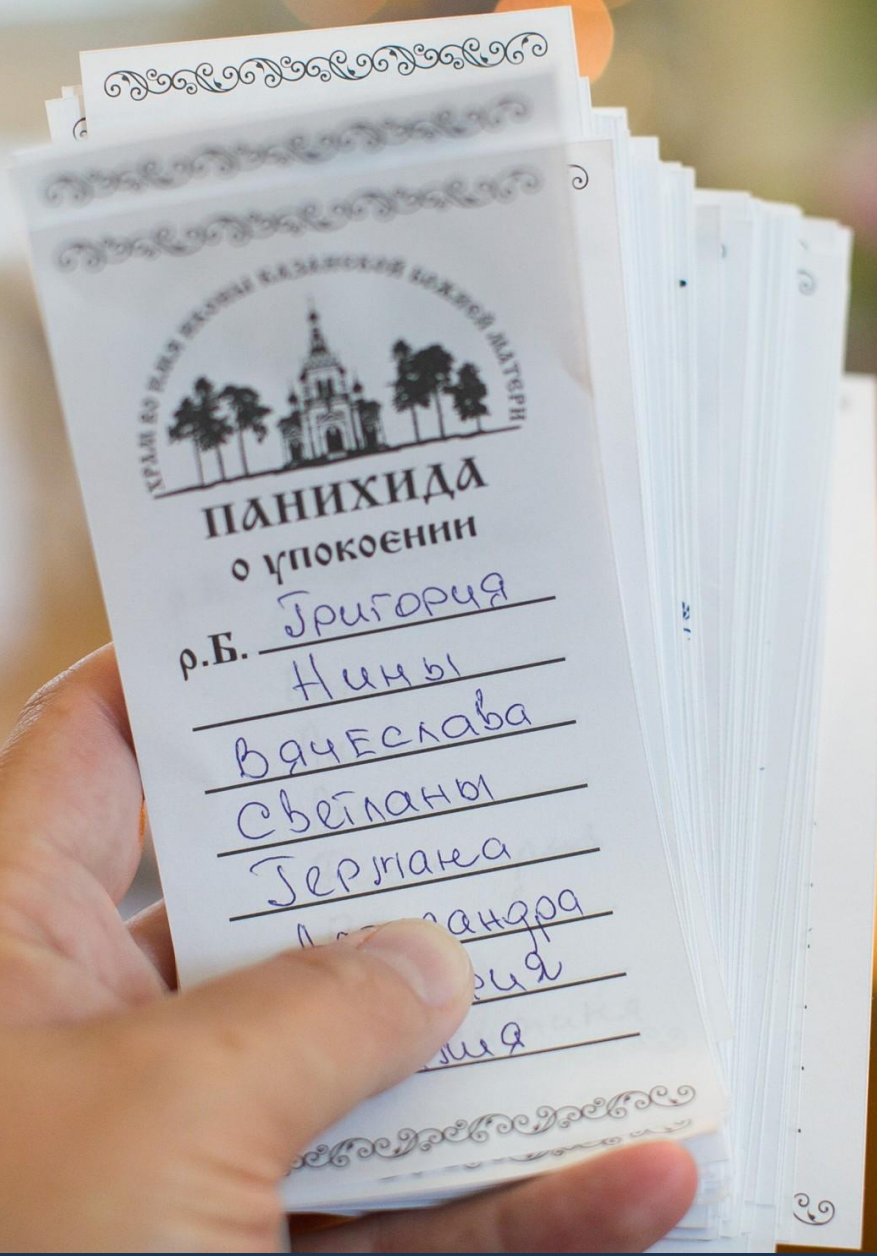 ХРАМ ВО ИМЯ ИКОНЫ КАЗАНСКОЙ БОЖИЕЙ МАТЕРИ
ПАНИХИДА
о упокоении
р.Б. Григория
Нины
Вячеслава
Светланы
Германа